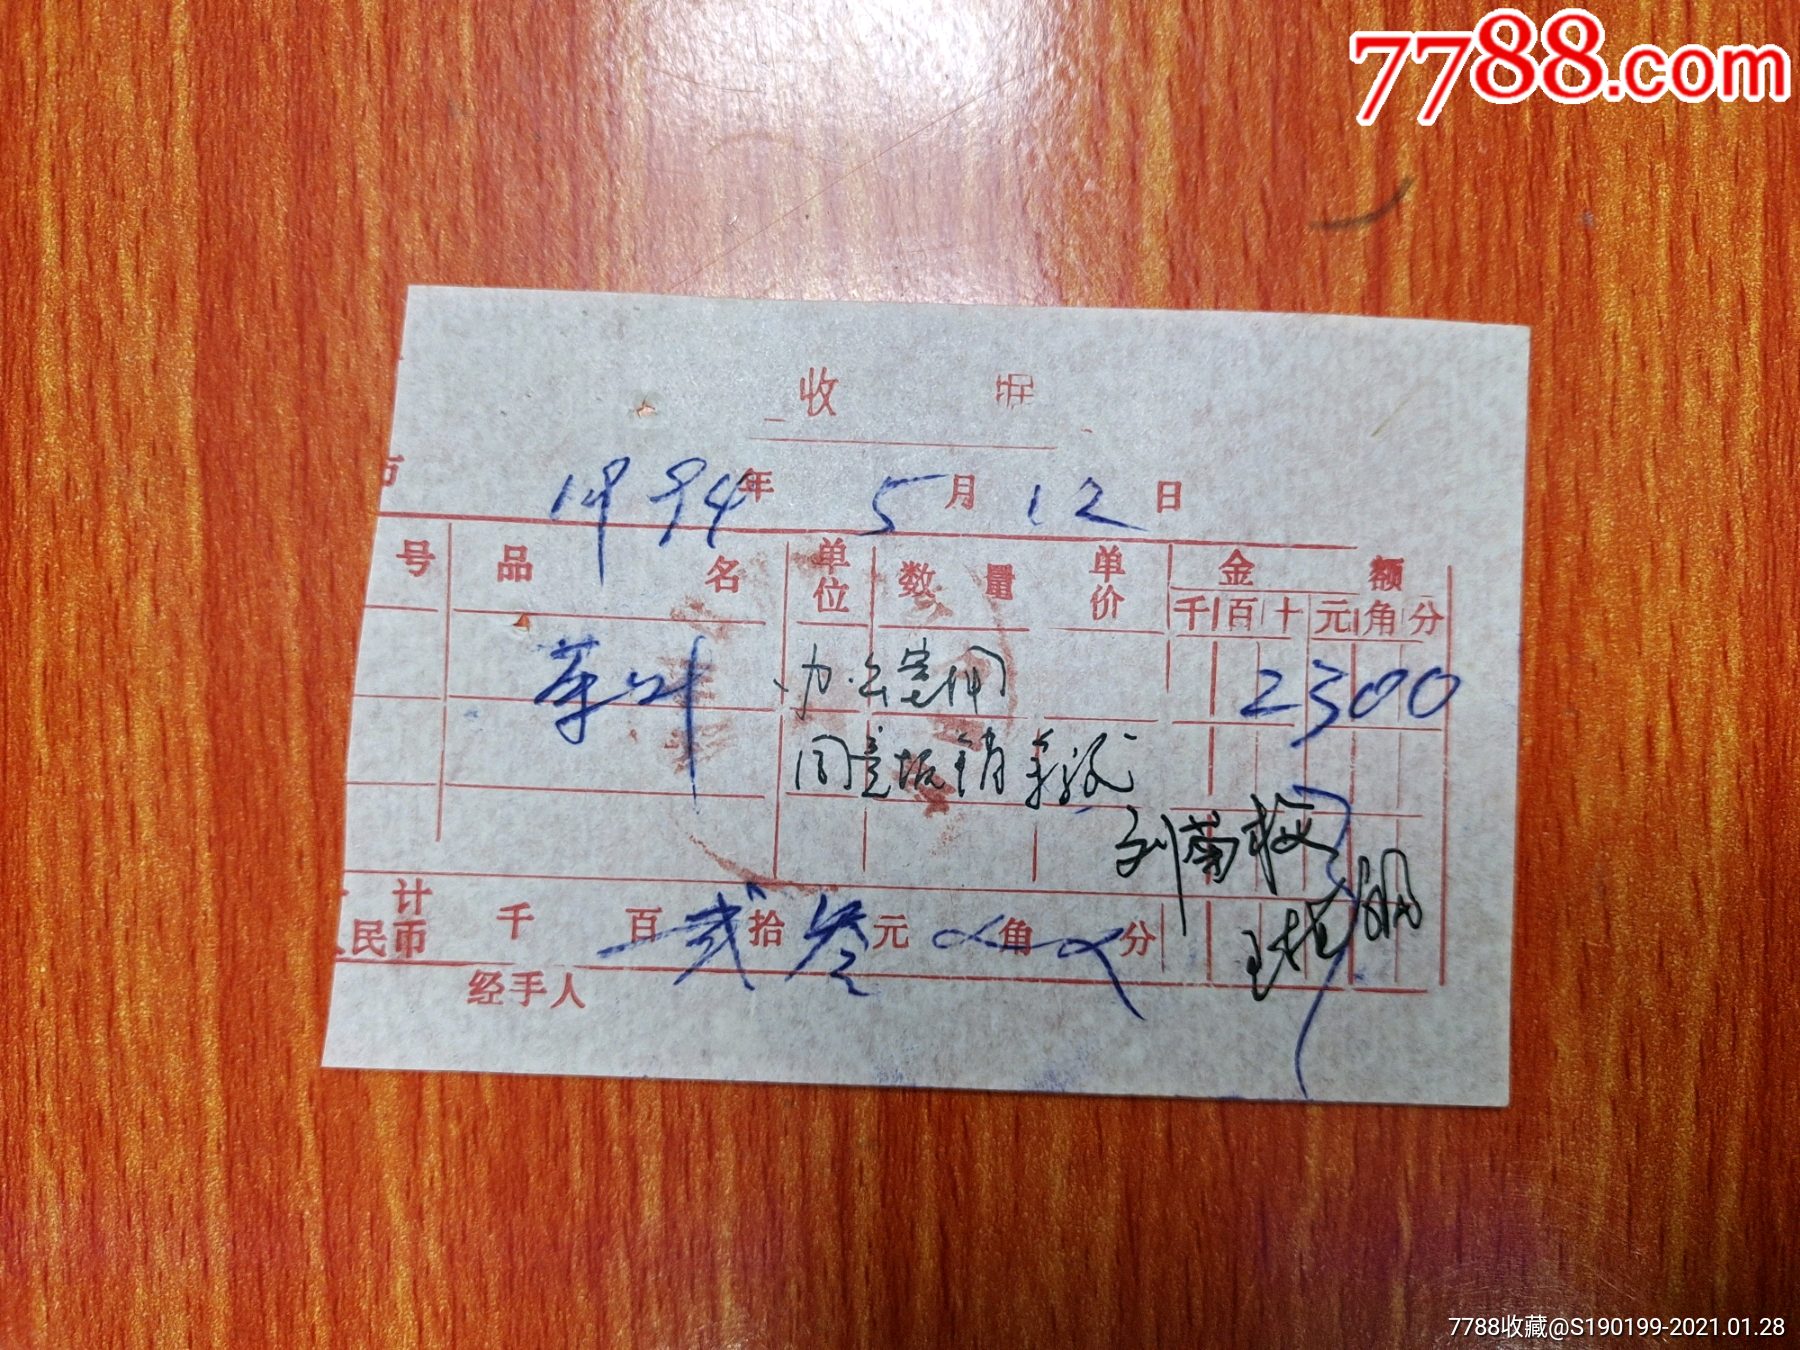 7788.com
收 据
1994年 5月 12日
号 品 名 单位 数量 单价 金 额
千 百 十 元 角 分
茶叶 办公室用 2300
同意报销
刘菊梅
计 千 百 贰拾 叁元 角 分
民币
经手人
7788收藏@S190199-2021.01.28